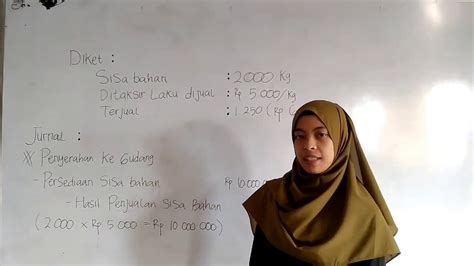 Diket :
Sisa bahan : 2000 Kg
Ditaksir Laku dijual : Rp 5.000/Kg
Terjual : 1.250 ( Rp
Jurnal :
Penyerahan Ke Gudang
- Persediaan Sisa bahan Rp 10.000
- Hasil Penjualan Sisa Bahan
( 2000 x Rp 5 000 = Rp 10 000 000 )